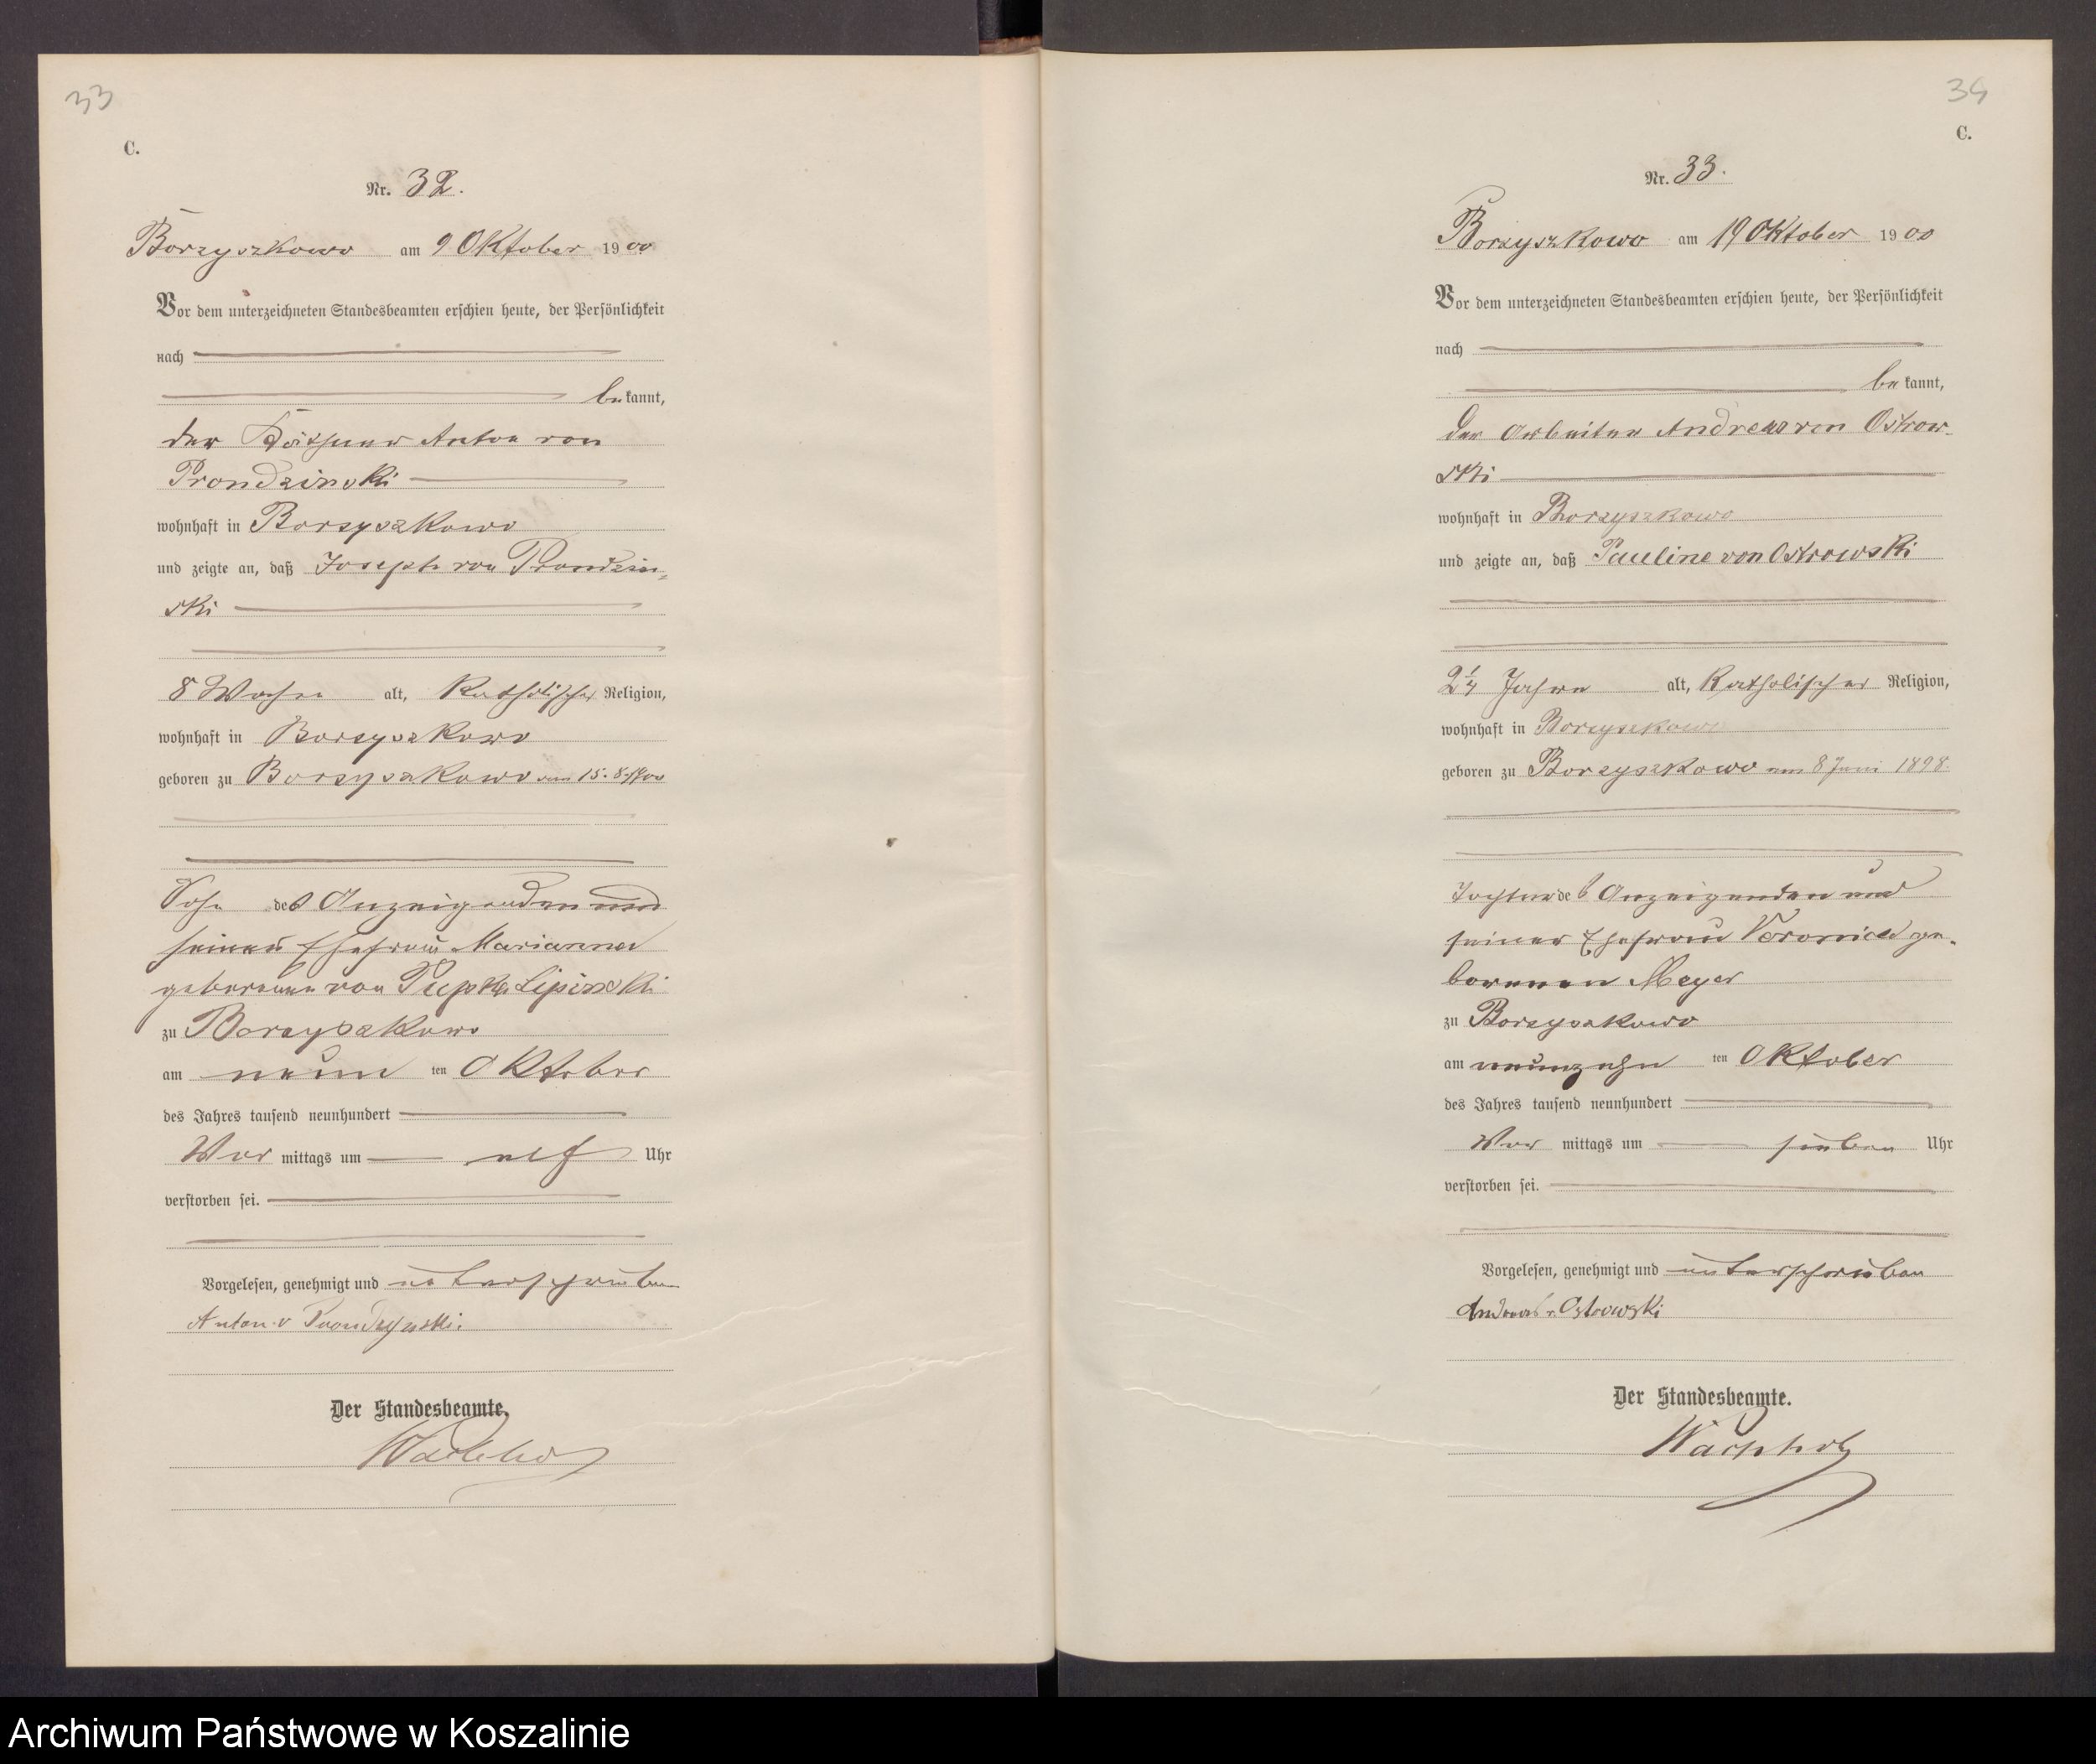 33
C.
Nr. 32.
Borzyszkowo am 9 Oktober 1900
Vor dem unterzeichneten Standesbeamten erschien heute, der Persönlichkeit
nach
bekannt,
der Käthner Anton von
Prondzinski
wohnhaft in Borzyszkowo
und zeigte an, daß Joseph von Prondzin-
ski
8 Wochen alt, katholischer Religion,
wohnhaft in Borzyszkowo
geboren zu Borzyszkowo am 15. 8. 1900
Sohn des Anzeigenden und
seiner Ehefrau Marianna
geborenen von Lipinski
zu Borzyszkowo
am neun ten Oktober
des Jahres tausend neunhundert
Vor mittags um elf Uhr
verstorben sei.
Vorgelesen, genehmigt und unterschrieben
Anton v Prondzynski.
Der Standesbeamte.
Wachholz
34
C.
Nr. 33.
Borzyszkowo am 19 Oktober 1900
Vor dem unterzeichneten Standesbeamten erschien heute, der Persönlichkeit
nach
bekannt,
der Arbeiter Andreas von Ostrow-
ski
wohnhaft in Borzyszkowo
und zeigte an, daß Pauline von Ostrowski
2 1/4 Jahre alt, katholischer Religion,
wohnhaft in Borzyszkowo
geboren zu Borzyszkowo am 8 Juni 1898.
Tochter des Anzeigenden und
seiner Ehefrau Veronica ge-
borenen Meyer
zu Borzyszkowo
am neunzehn ten Oktober
des Jahres tausend neunhundert
Vor mittags um sieben Uhr
verstorben sei.
Vorgelesen, genehmigt und unterschrieben
Andreas v. Ostrowski
Der Standesbeamte.
Wachholz
Archiwum Państwowe w Koszalinie